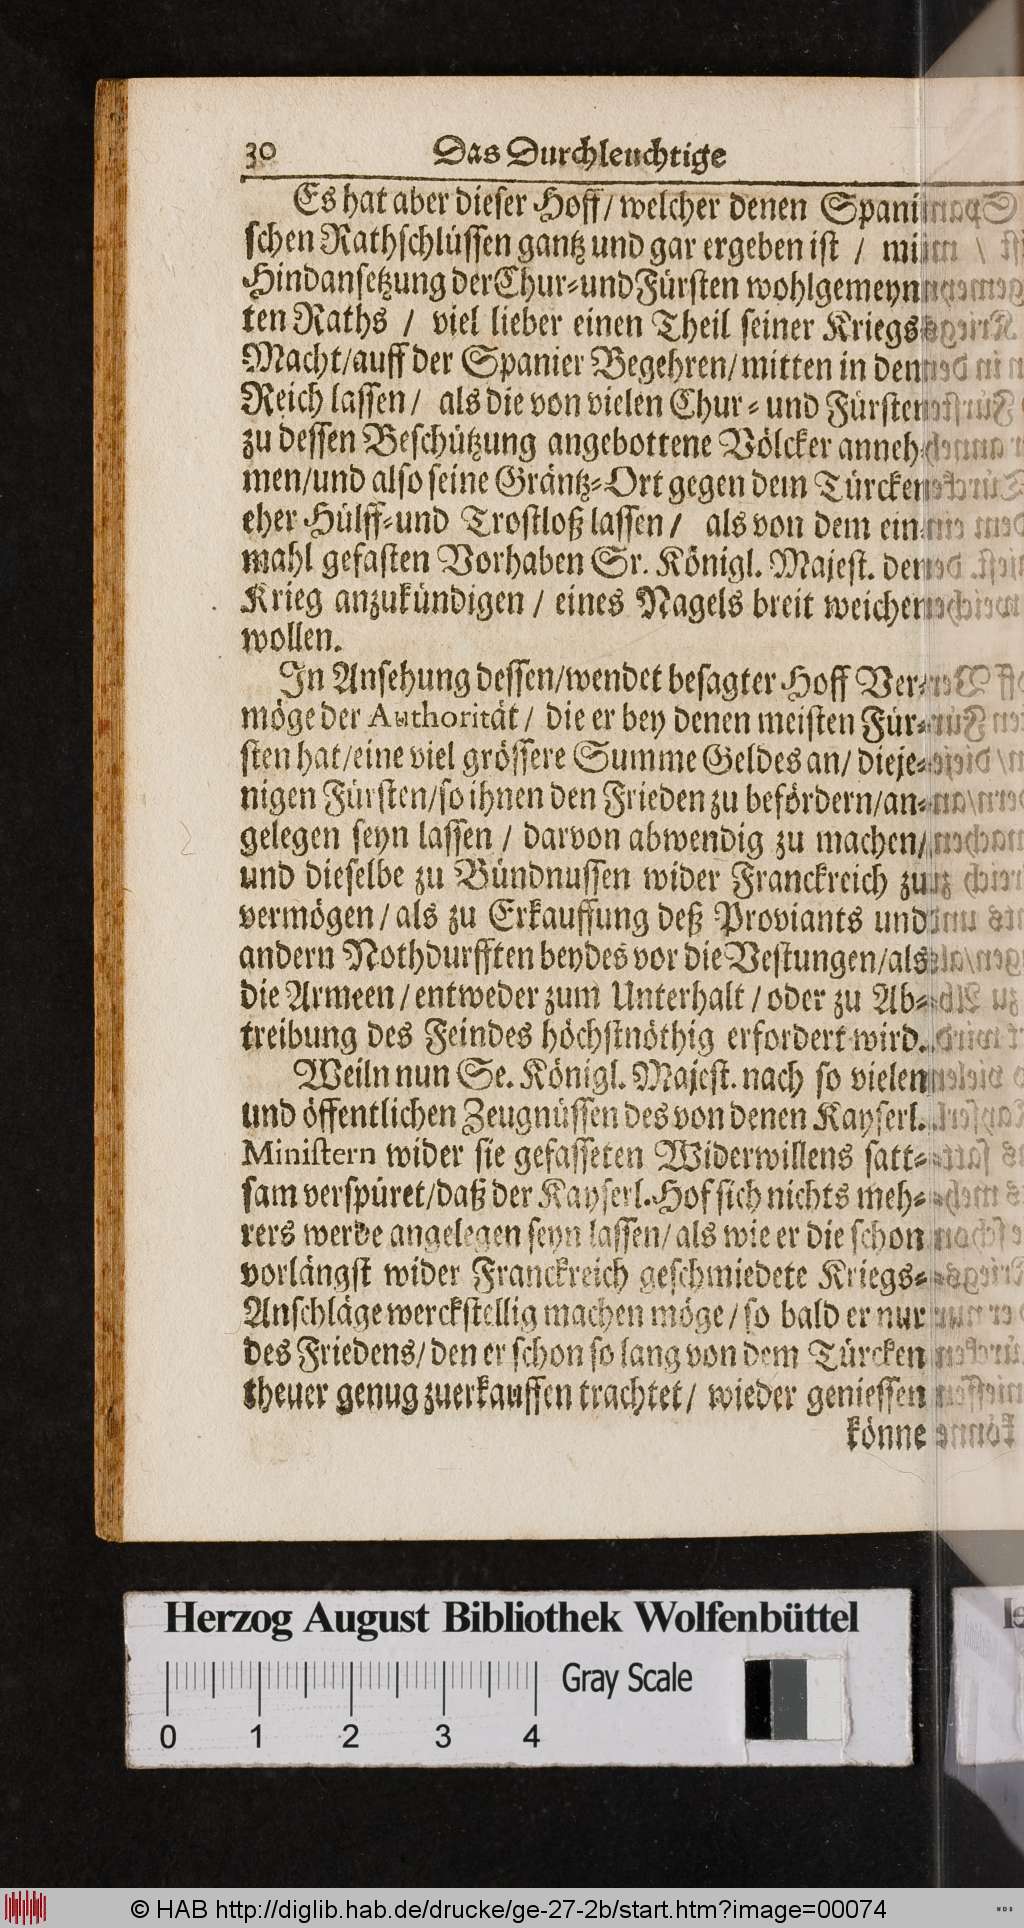 30 Das Durchleuchtige
Es hat aber dieser Hoff / welcher denen Spani
schen Rathschlüssen gantz und gar ergeben ist / mi
Hindansetzung der Chur- und Fürsten wohlgemeyn
ten Raths / viel lieber einen Theil seiner Kriegs
Macht / auff der Spanier Begehren / mitten in den
Reich lassen / als die von vielen Chur- und Fürsten
zu dessen Beschützung angebottene Völcker anneh-
men / und also seine Gräntz-Ort gegen dem Türcken
eher Hülff- und Trostloß lassen / als von dem ein-
mahl gefasten Vorhaben Sr. Königl. Majest. den
Krieg anzukündigen / eines Nagels breit weichen
wollen.
In Ansehung dessen / wendet besagter Hoff Ver-
möge der Authorität / die er bey denen meisten Für-
sten hat / eine viel grössere Summe Geldes an / dieje-
nigen Fürsten / so ihnen den Frieden zu befördern / an-
gelegen seyn lassen / darvon abwendig zu machen /
und dieselbe zu Bündnussen wider Franckreich zu
vermögen / als zu Erkauffung deß Proviants und
andern Nothdurfften beydes vor die Vestungen / als
die Armeen / entweder zum Unterhalt / oder zu Ab-
treibung des Feindes höchstnöthig erfordert wird.
Weiln nun Se. Königl. Majest. nach so vielen
und öffentlichen Zeugnüssen des von denen Kayserl.
Ministern wider sie gefasseten Widerwillens satt-
sam verspüret / daß der Kayserl. Hof sich nichts meh-
rers werde angelegen seyn lassen / als wie er die schon
vorlängst wider Franckreich geschmiedete Kriegs-
Anschläge werckstellig machen möge / so bald er nur
des Friedens / den er schon so lang von dem Türcken
theuer genug zuerkauffen trachtet / wieder geniessen
könne
Herzog August Bibliothek Wolfenbüttel
0 1 2 3 4 Gray Scale
© HAB http://diglib.hab.de/drucke/ge-27-2b/start.htm?image=00074